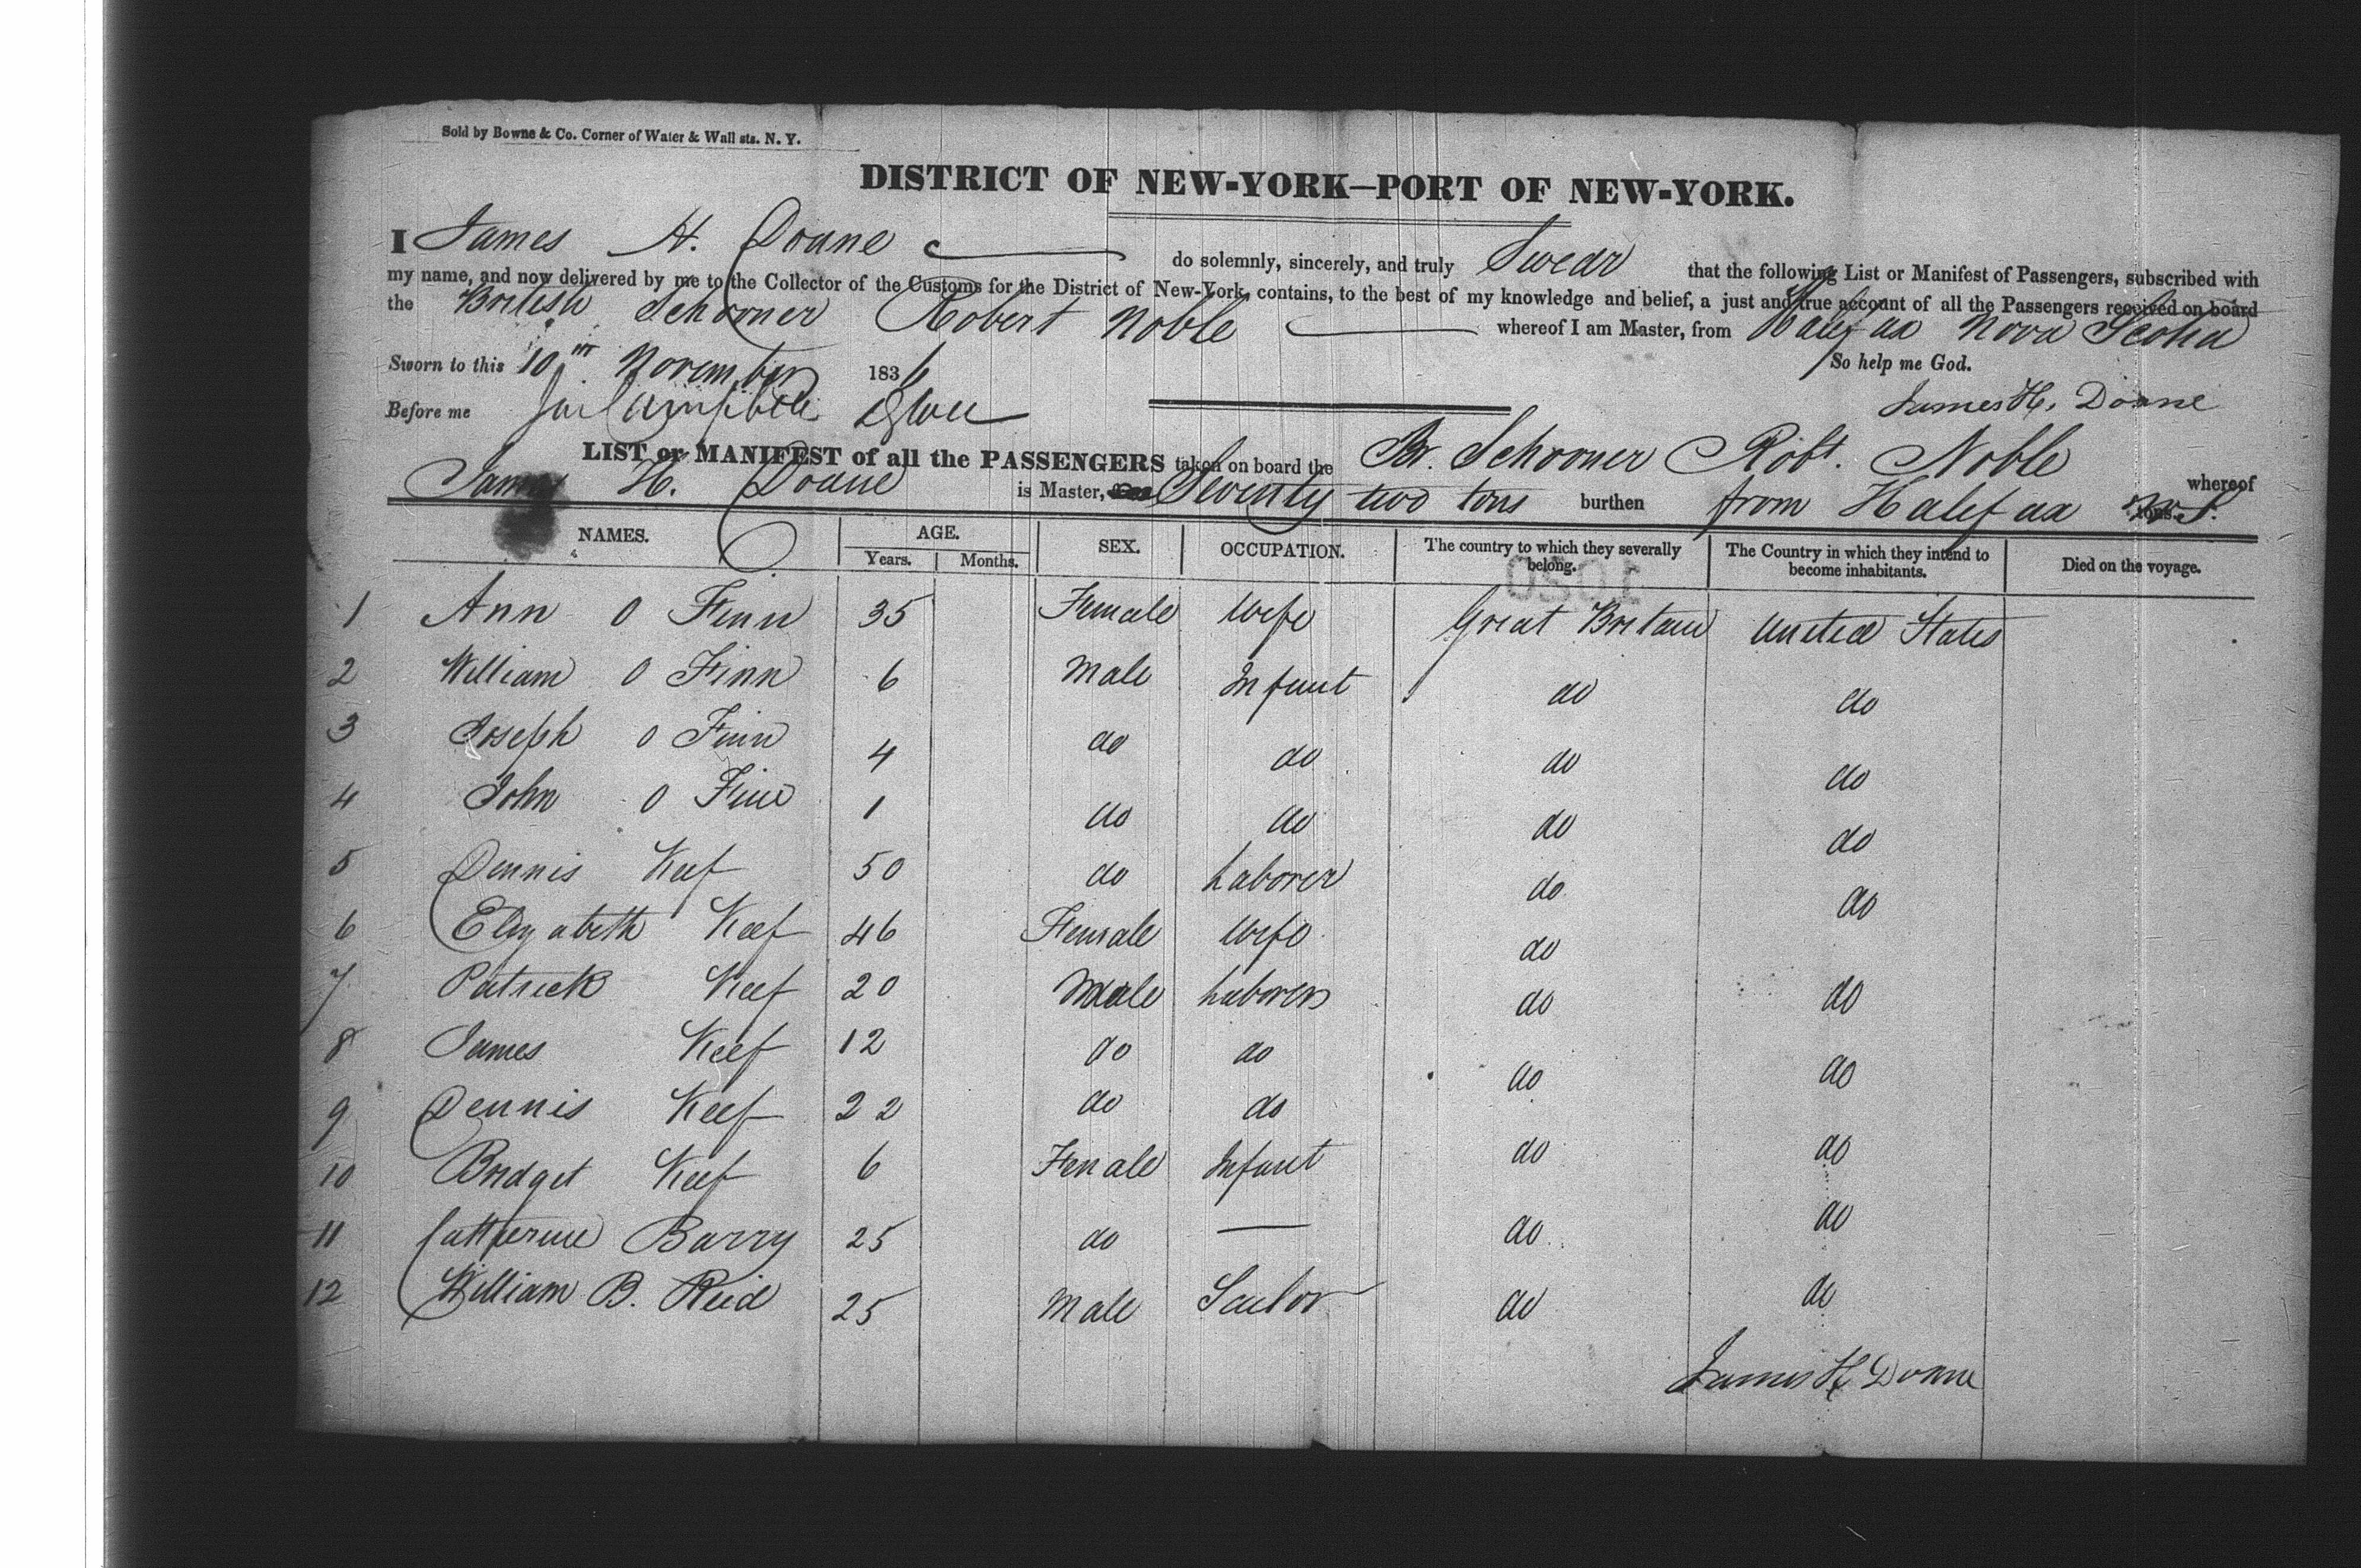 Sold by Bowne & Co. Corner of Water & Wall sts. N. Y.
DISTRICT OF NEW-YORK—PORT OF NEW-YORK.
I James H. Doane do solemnly, sincerely, and truly Swear that the following List or Manifest of Passengers, subscribed with
my name, and now delivered by me to the Collector of the Customs for the District of New-York, contains, to the best of my knowledge and belief, a just and true account of all the Passengers received on board
the British Schooner Robert Noble whereof I am Master, from Halifax Nova Scotia
Sworn to this 10th November 1836 So help me God.
Before me Campbell James H. Doane
LIST or MANIFEST of all the PASSENGERS taken on board the Br. Schooner Robt. Noble whereof
James H. Doane is Master, Seventy two tons burthen from Halifax N.S.
NAMES. AGE. SEX. OCCUPATION. The country to which they severally belong. The Country in which they intend to become inhabitants. Died on the voyage.
Years. Months.
1 Ann O Finn 35 Female Wife Great Britain United States
2 William O Finn 6 Male Infant do do
3 Joseph O Finn 4 do do do do
4 John O Finn 1 do do do do
5 Dennis Keef 50 do Laborer do do
6 Elizabeth Keef 46 Female Wife do do
7 Patrick Keef 20 Male Laborer do do
8 James Keef 12 do do do do
9 Dennis Keef 22 do do do do
10 Bridget Keef 6 Female Infant do do
11 Catherine Barry 25 do — do do
12 William B. Reid 25 Male Sailor do do
James H Doane